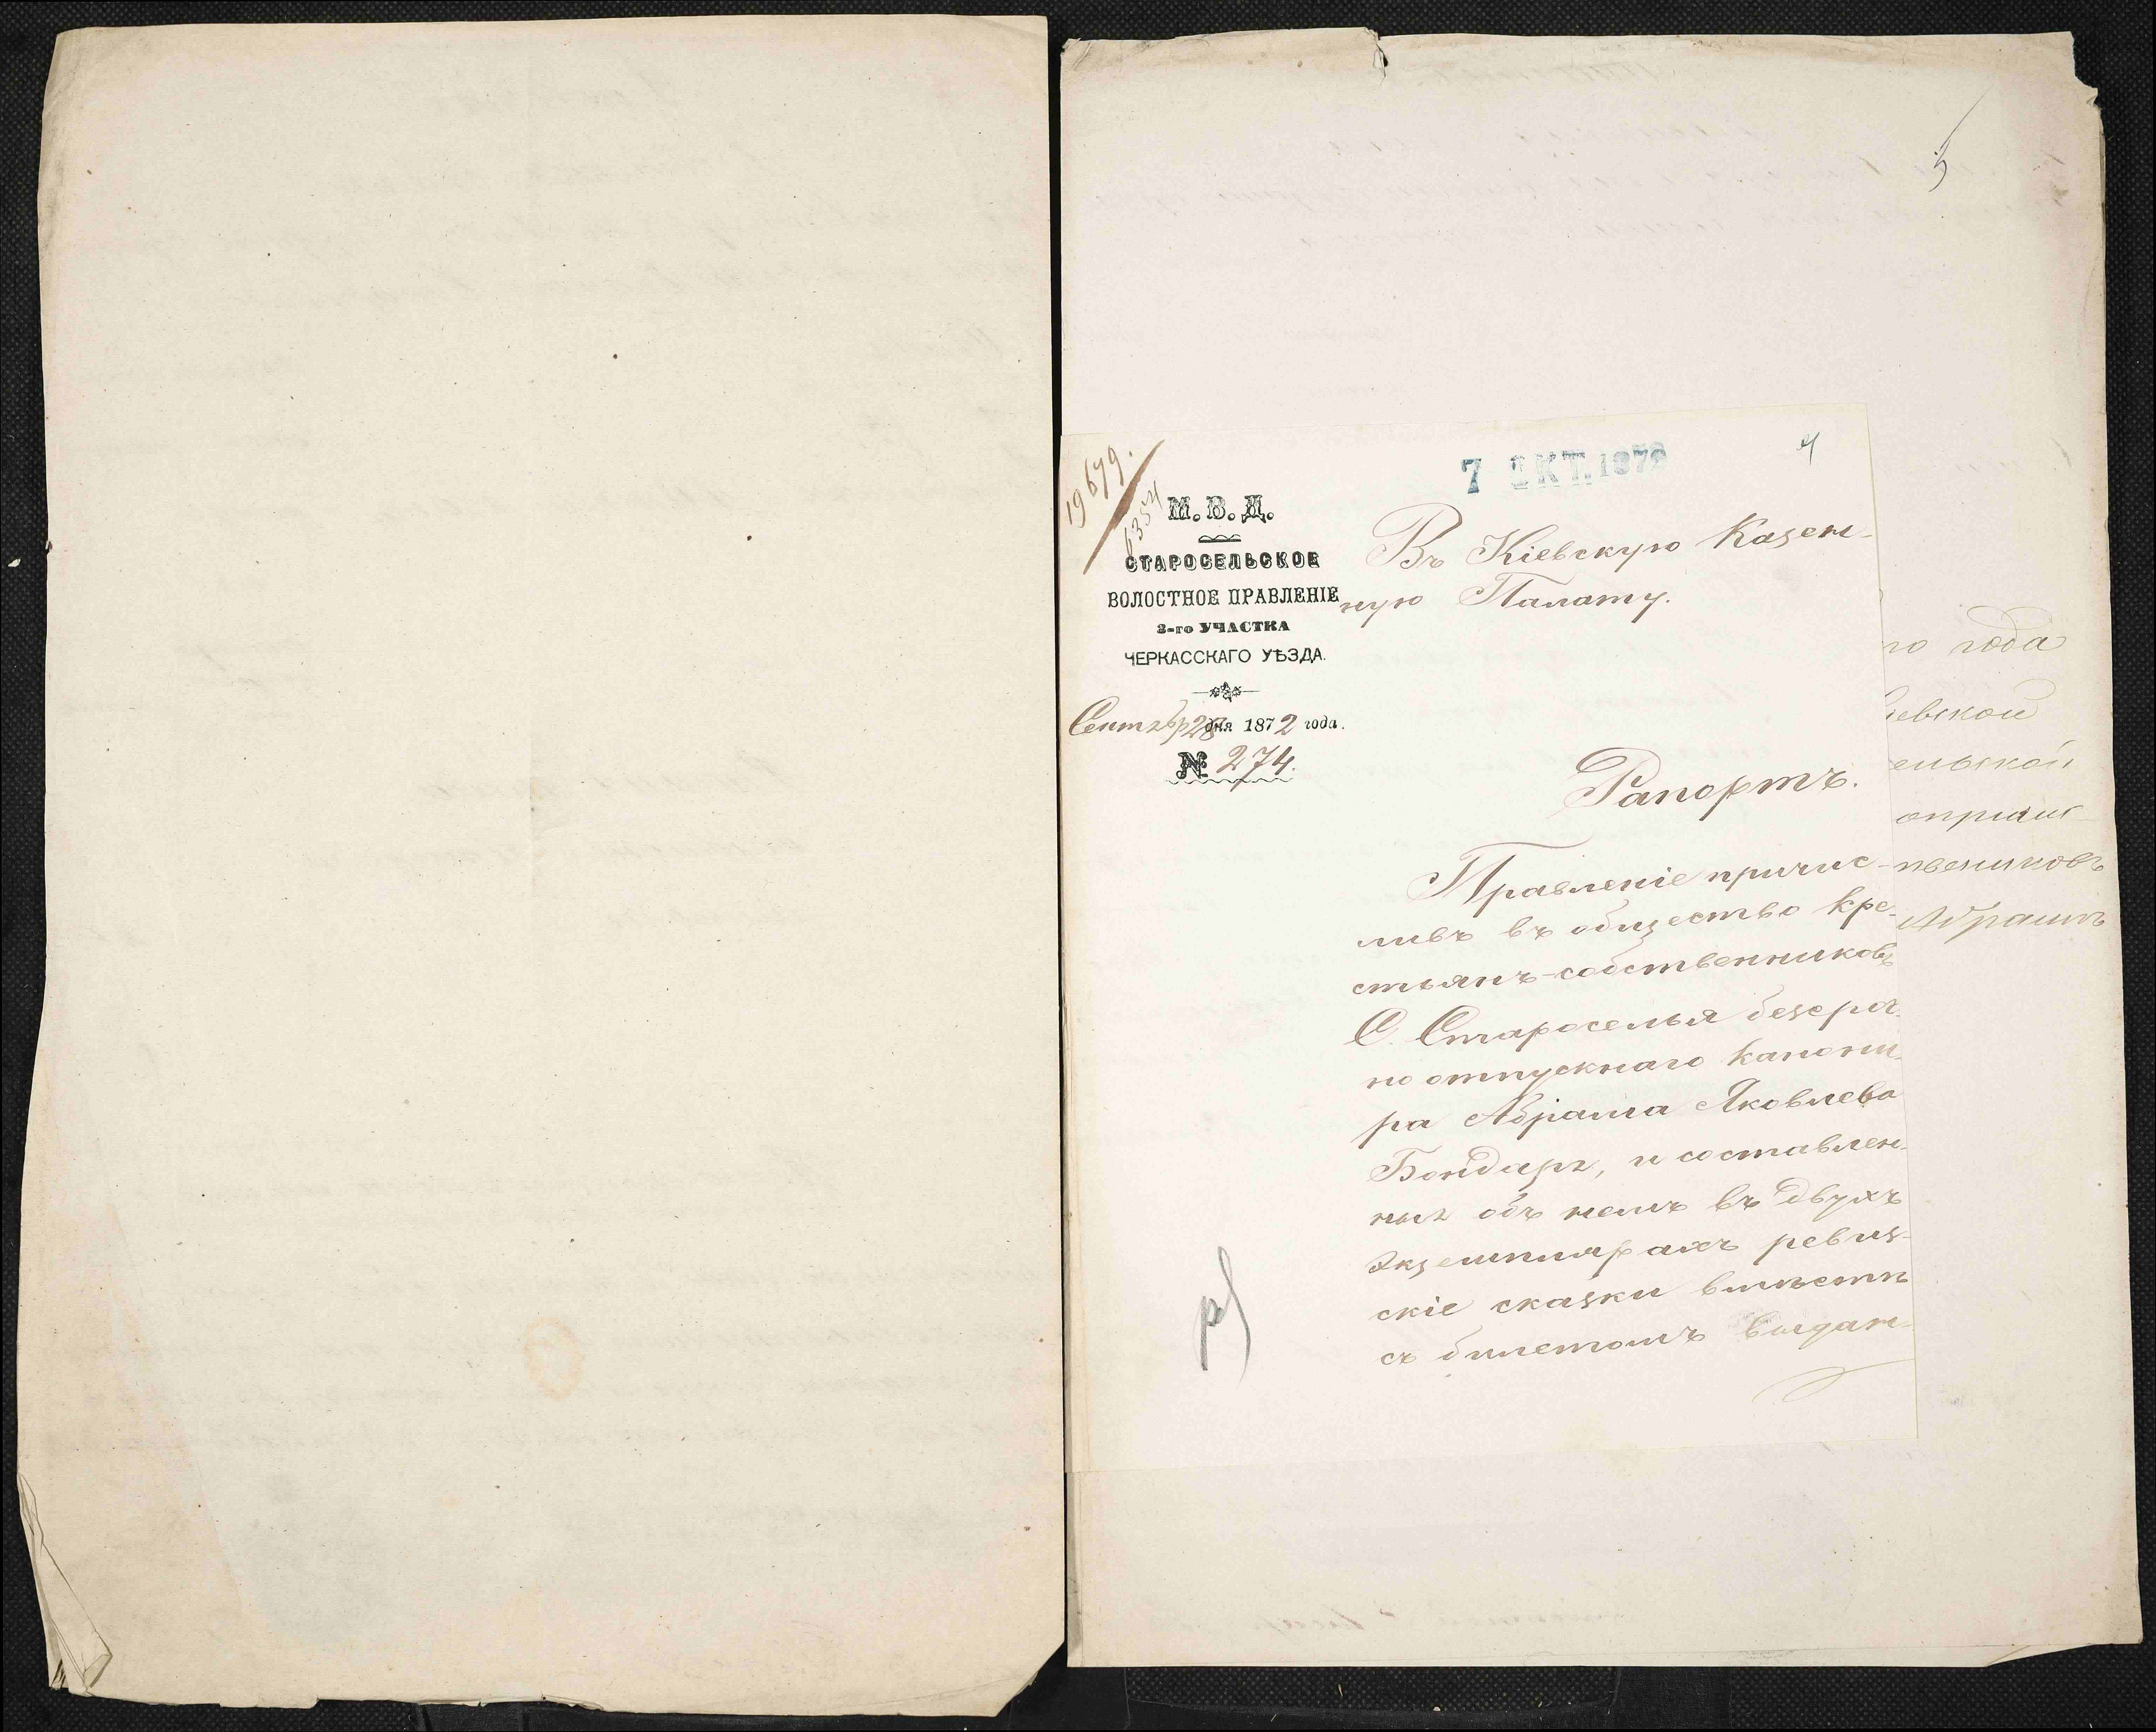 5
19679.
6354
7 ОКТ. 1872
4
М. В. Д.
СТАРОСЕЛЬСКОЕ
ВОЛОСТНОЕ ПРАВЛЕНІЕ
3-го УЧАСТКА
ЧЕРКАССКАГО УѢЗДА.
Сентября 28 дня 1872 года.
№ 274.
Въ Кіевскую Казен-
ную Палату.
Рапортъ.
Правленіе причис-
ливъ въ общество кре-
стьянъ-собственниковъ
С. Староселья безсроч-
но отпускнаго канони-
ра Абрама Яковлева
Бондаря, и составлен-
ныя объ немъ въ двухъ
экземплярахъ ревиз-
скіе сказки вмѣстѣ
съ билетомъ выдан-
го года
іевской
ельской
Абрамъ